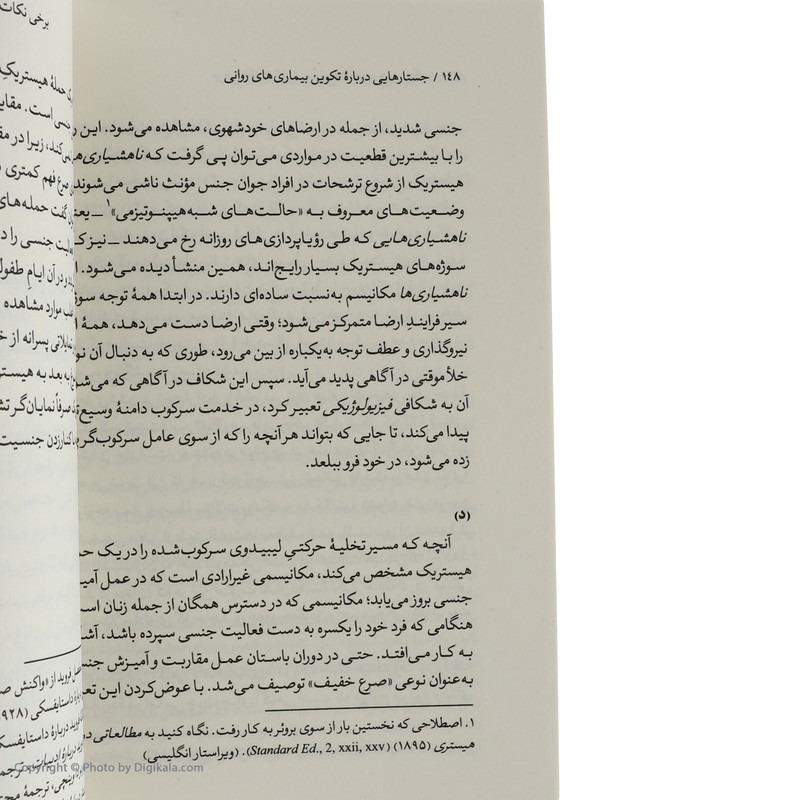 ۱۴۸ / جستارهایی دربارهٔ تکوین بیماری‌های روانی
جنسی شدید، از جمله در ارضاهای خودشهوی، مشاهده می‌شود. این
را با بیشترین قطعیت در مواردی می‌توان پی گرفت که ناهشیاری
هیستریک از شروع ترشحات در افراد جوان جنس مؤنث ناشی می‌شوند
وضعیت‌های معروف به «حالت‌های شبه‌هیپنوتیزمی»۱ ــ یعنی
ناهشیاری‌هایی که طی رؤیاپردازی‌های روزانه رخ می‌دهند ــ نیز که
سوژه‌های هیستریک بسیار رایج‌اند، همین منشأ دیده می‌شود.
ناهشیاری‌ها مکانیسم به‌نسبت ساده‌ای دارند. در ابتدا همهٔ توجه
سیر فرایندِ ارضا متمرکز می‌شود؛ وقتی ارضا دست می‌دهد، همهٔ
نیروگذاری و عطف توجه به‌یکباره از بین می‌رود، طوری که به دنبال آن
خلأ موقتی در آگاهی پدید می‌آید. سپس این شکاف در آگاهی که می‌شود
آن به شکافی فیزیولوژیکی تعبیر کرد، در خدمت سرکوب دامنهٔ وسیع‌تری
پیدا می‌کند، تا جایی که بتواند هر آنچه را که از سوی عامل سرکوب‌گر
زده می‌شود، در خود فرو ببلعد.
(د)
آنچه که مسیر تخلیهٔ حرکتیِ لیبیدوی سرکوب‌شده را در یک
هیستریک مشخص می‌کند، مکانیسمی غیرارادی است که در عمل
جنسی بروز می‌یابد؛ مکانیسمی که در دسترس همگان از جمله زنان
هنگامی که فرد خود را یکسره به دست فعالیت جنسی سپرده باشد،
به کار می‌افتد. حتی در دوران باستان عمل مقاربت و آمیزش
به‌عنوان نوعی «صرع خفیف» توصیف می‌شد. با عوض‌کردن این
۱. اصطلاحی که نخستین بار از سوی بروئر به کار رفت. نگاه کنید به مطالعاتی
هیستری (۱۸۹۵) (Standard Ed., 2, xxii, xxv). (ویراستار انگلیسی)
برخی نکات
حملهٔ هیستریک
است.
زیرا در
صرع فهم کمتری
گفت حمله‌های
جنسی را در
و در آن ایام
موارد مشاهده
پسرانه از
به بعد به
صرفاً نمایان‌گر
کنار زدن جنسیت
فروید از «واکنش
داستایفسکی
فروید دربارهٔ داستایفسکی
ترجمهٔ
Copyright © Photo by Digikala.com